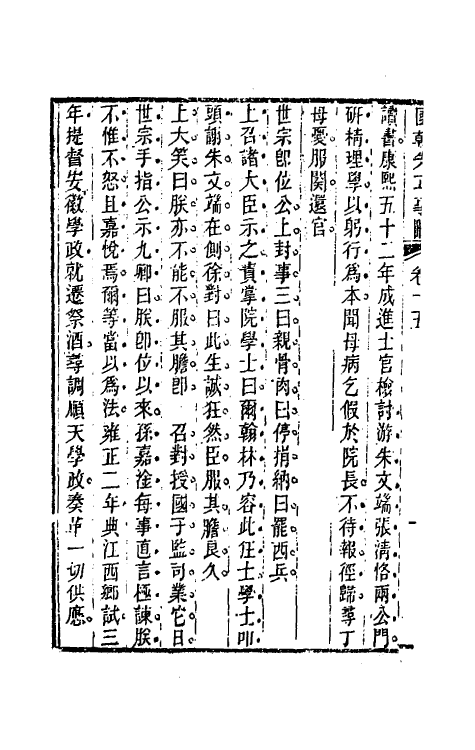 國朝先正事略　卷十五
讀書康熙五十二年成進士官檢討游朱文端張清恪兩公門
研精理學以躬行爲本聞母病乞假於院長不待報徑歸尋丁
母憂服闋還官
世宗卽位公上封事三曰親骨肉曰停捐納曰罷西兵
上召諸大臣示之責掌院學士曰爾翰林乃容此狂士學士叩
頭謝朱文端在側徐對曰此生誠狂然臣服其膽良久
上大笑曰朕亦不能不服其膽卽　召對授國子監司業它日
世宗手指公示九卿曰朕卽位以來孫嘉淦每事直言極諫朕
不惟不怒且嘉悅焉爾等當以爲法雍正二年典江西鄉試三
年提督安徽學政就遷祭酒尋調順天學政奏革一切供應